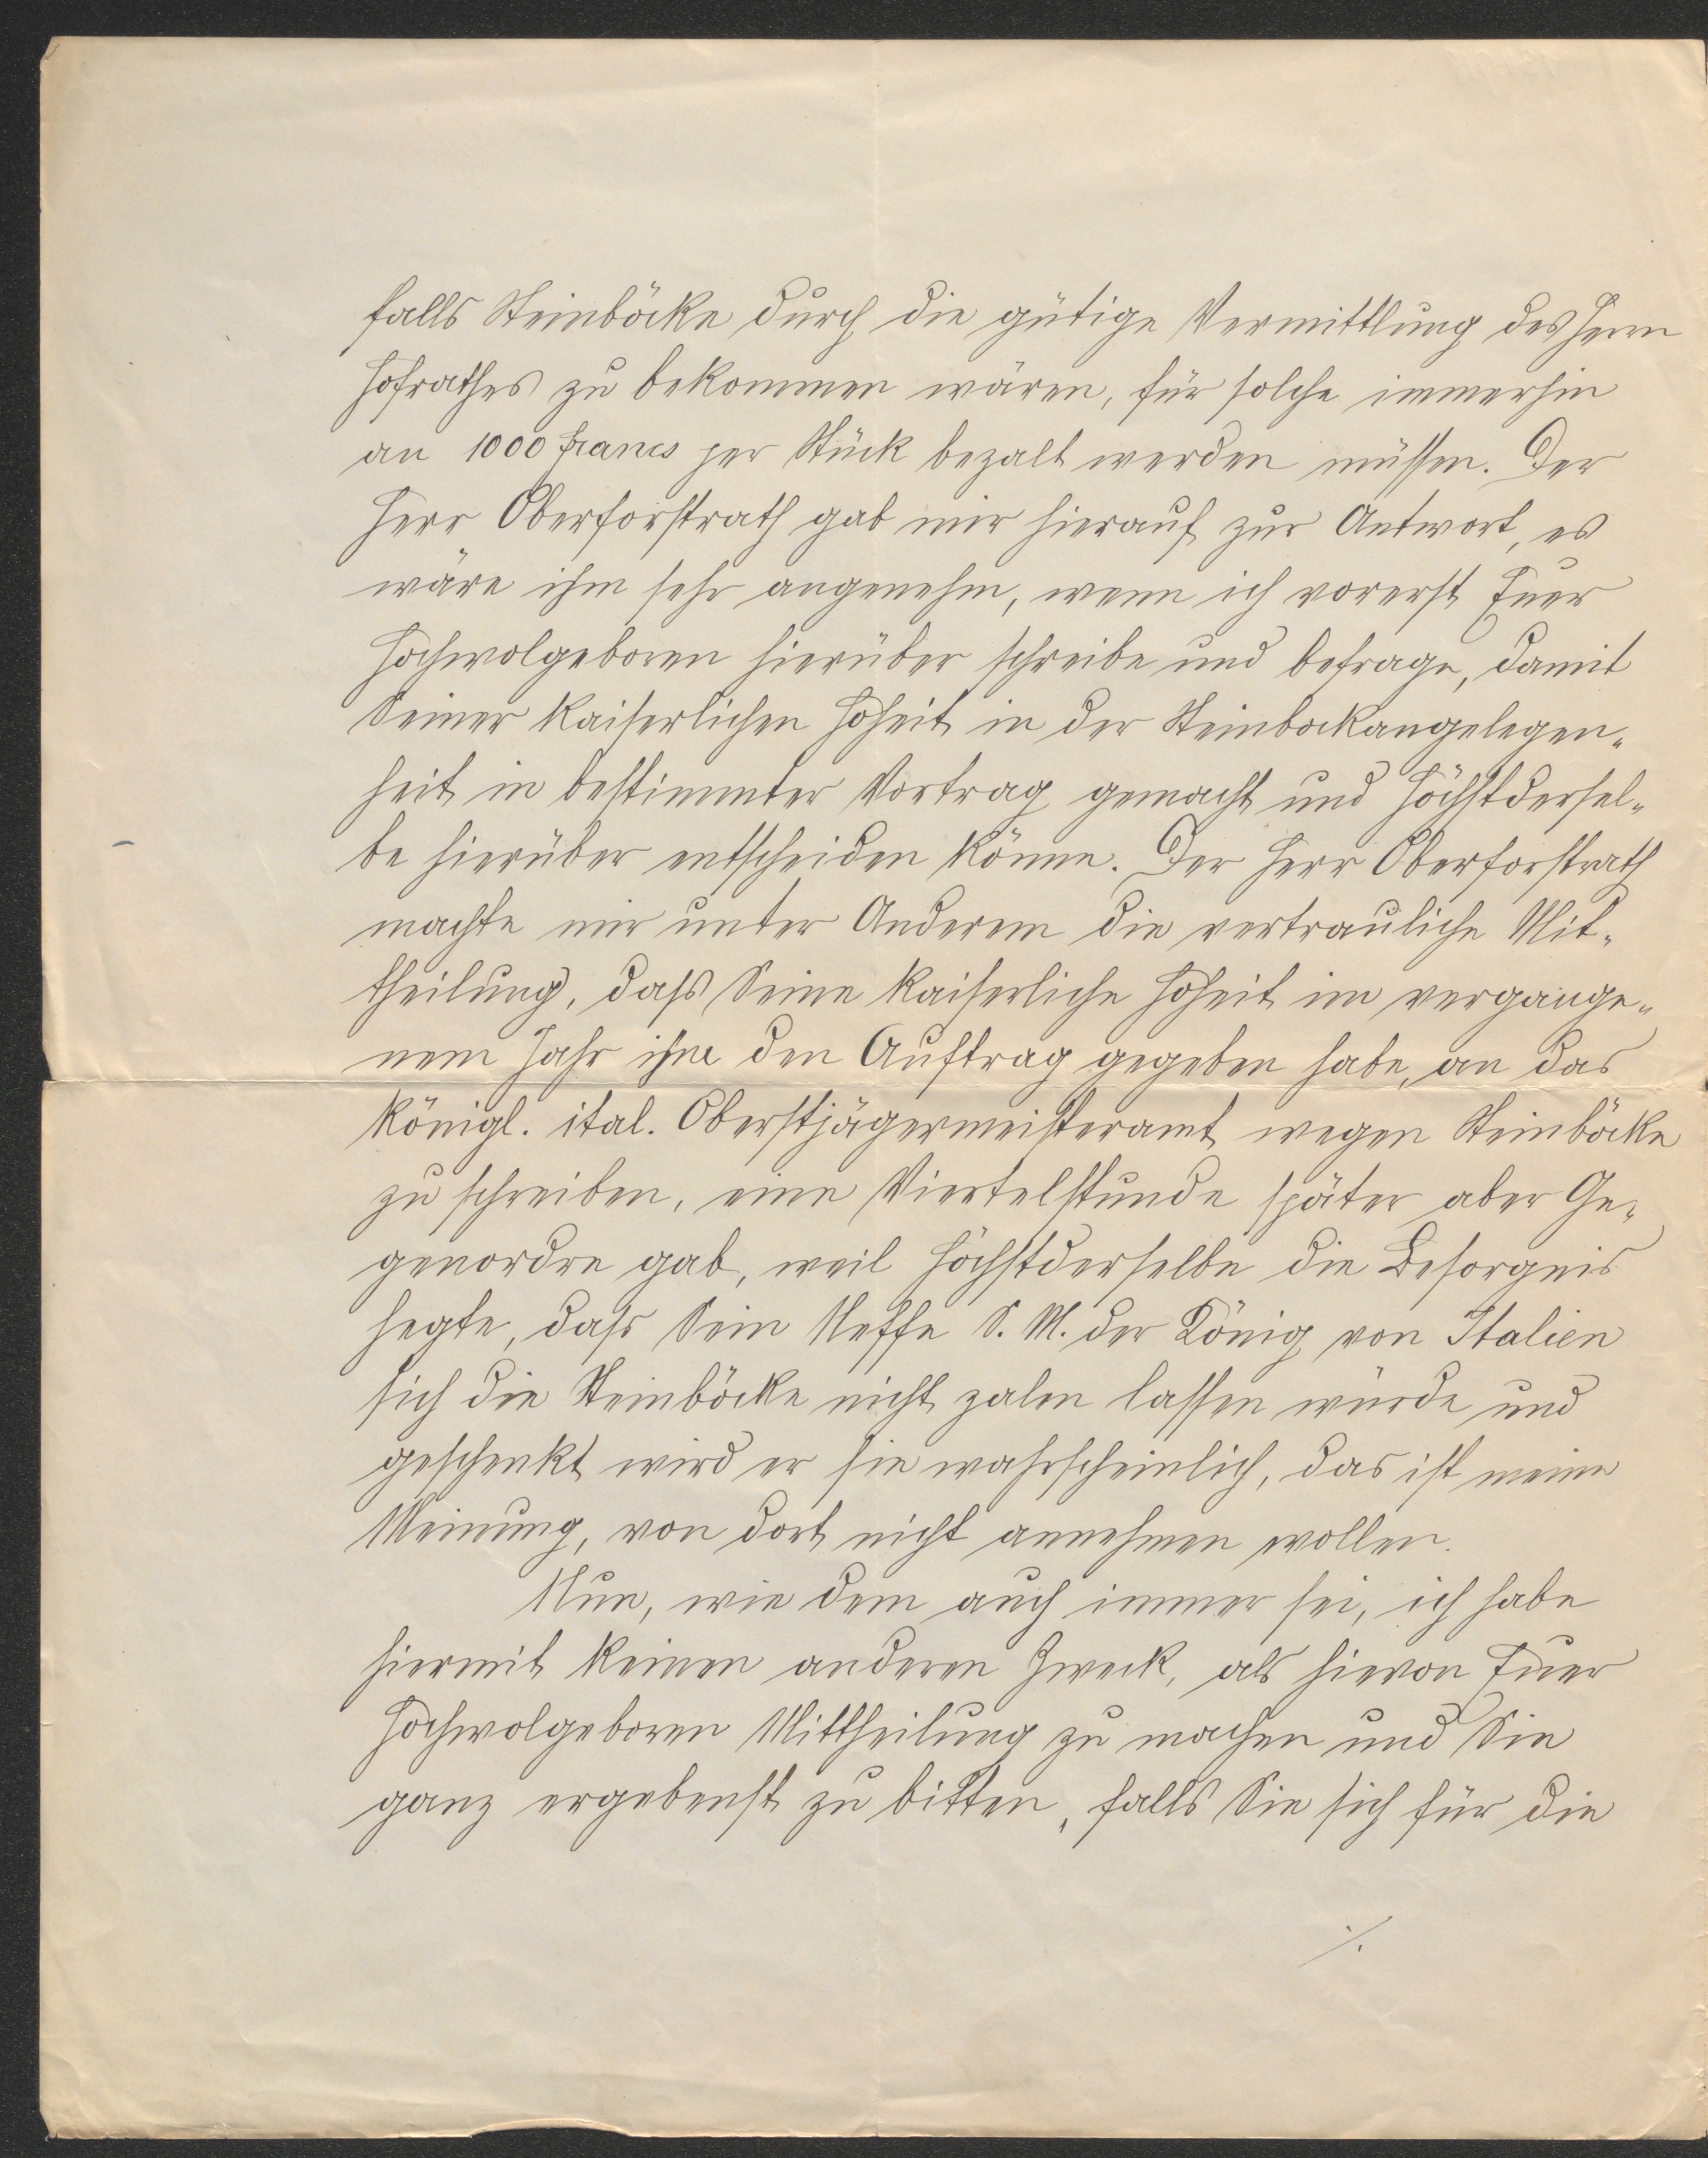 falls Steinböcke durch die gütige Vermittlung des Herrn
Hofrathes zu bekommen wären, für solche immerhin
an 1000 francs per Stück bezalt werden müssen. Der
Herr Oberforstrath gab mir hierauf zur Antwort, es
wäre ihm sehr angenehm, wenn ich vorerst Euer
Hochwolgeboren hierüber schreibe und befrage, damit
Seiner Kaiserlichen Hoheit in der Steinbockangelegen„
heit in bestimmter Vortrag gemacht und Höchstdersel„
be hierüber entscheiden könne. Der Herr Oberforstrath
machte mir unter Anderem die vertrauliche Mit„
theilung, daß Seine Kaiserliche Hoheit im vergange„
nem Jahr ihm den Auftrag gegeben habe, an das
königl. ital. Oberstjägermeisteramt wegen Steinböcke
zu schreiben, eine Viertelstunde später aber Ge„
genordre gab, weil Höchstderselbe die Besorgnis
hegte, daß Sein Neffe S. M. der König von Italien
sich die Steinböcke nicht zalen lassen würde und
geschenkt wird er sie wahrscheinlich, das ist meine
Meinung, von dort nicht annehmen wollen.
Nun, wie dem auch immer sei, ich habe
hiermit keinen anderen Zweck, als hievon Euer
Hochwolgeboren Mittheilung zu machen und Sie
ganz ergebenst zu bitten, falls Sie sich für die
./.